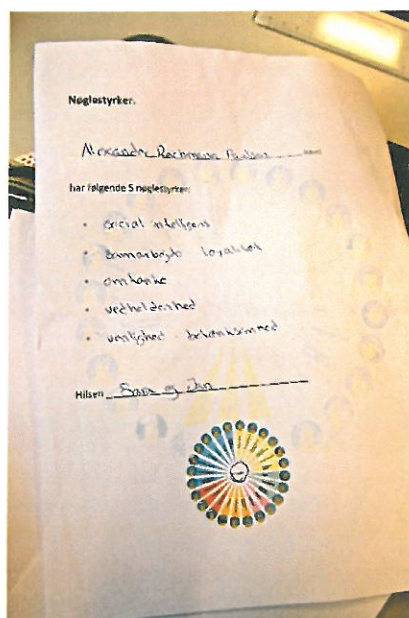 Nøglestyrker.
Alexandr Rachmann
har følgende 5 nøglestyrker:
• social intelligens
• samarbejde loyalitet
• omtanke
• vedholdenhed
• venlighed - betænksomhed
Hilsen og Jan